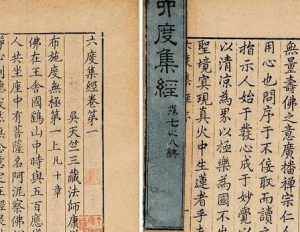 無量壽佛之意廣播禪
用心也問序于不佞取而讀
指示人始于發心成于妙覺以
以清涼為界以極樂為國不出
聖境實現真火中生蓮者乎
六度集經
六度集經
六度集經卷第一
吳天竺三藏法師康
布施度無極第一上凡十章
佛在王舍國鷂山中時與五百應
人共坐座中有菩薩名阿泥察佛